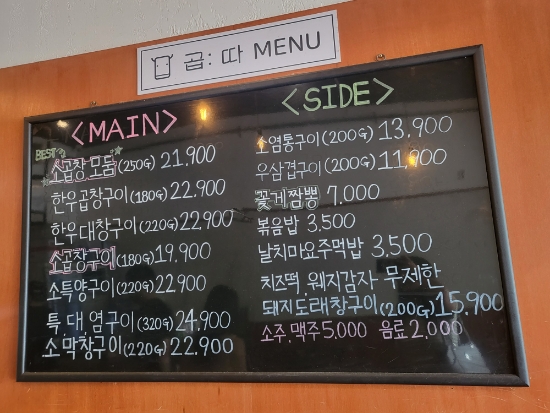 곱:따 MENU
<MAIN>
BEST
소곱창모둠(250G) 21,900
한우곱창구이(180G) 22,900
한우대창구이(220G) 22,900
소곱창구이(180G) 19,900
소특양구이(220G) 22,900
특.대.염구이(320G) 24,900
소막창구이(220G) 22,900
<SIDE>
소염통구이(200G) 13,900
우삼겹구이(200G) 11,900
꽃게짬뽕 7,000
볶음밥 3,500
날치마요주먹밥 3,500
치즈떡.웨지감자 무제한
돼지도래창구이(200G) 15,900
소주.맥주 5,000 음료 2,000